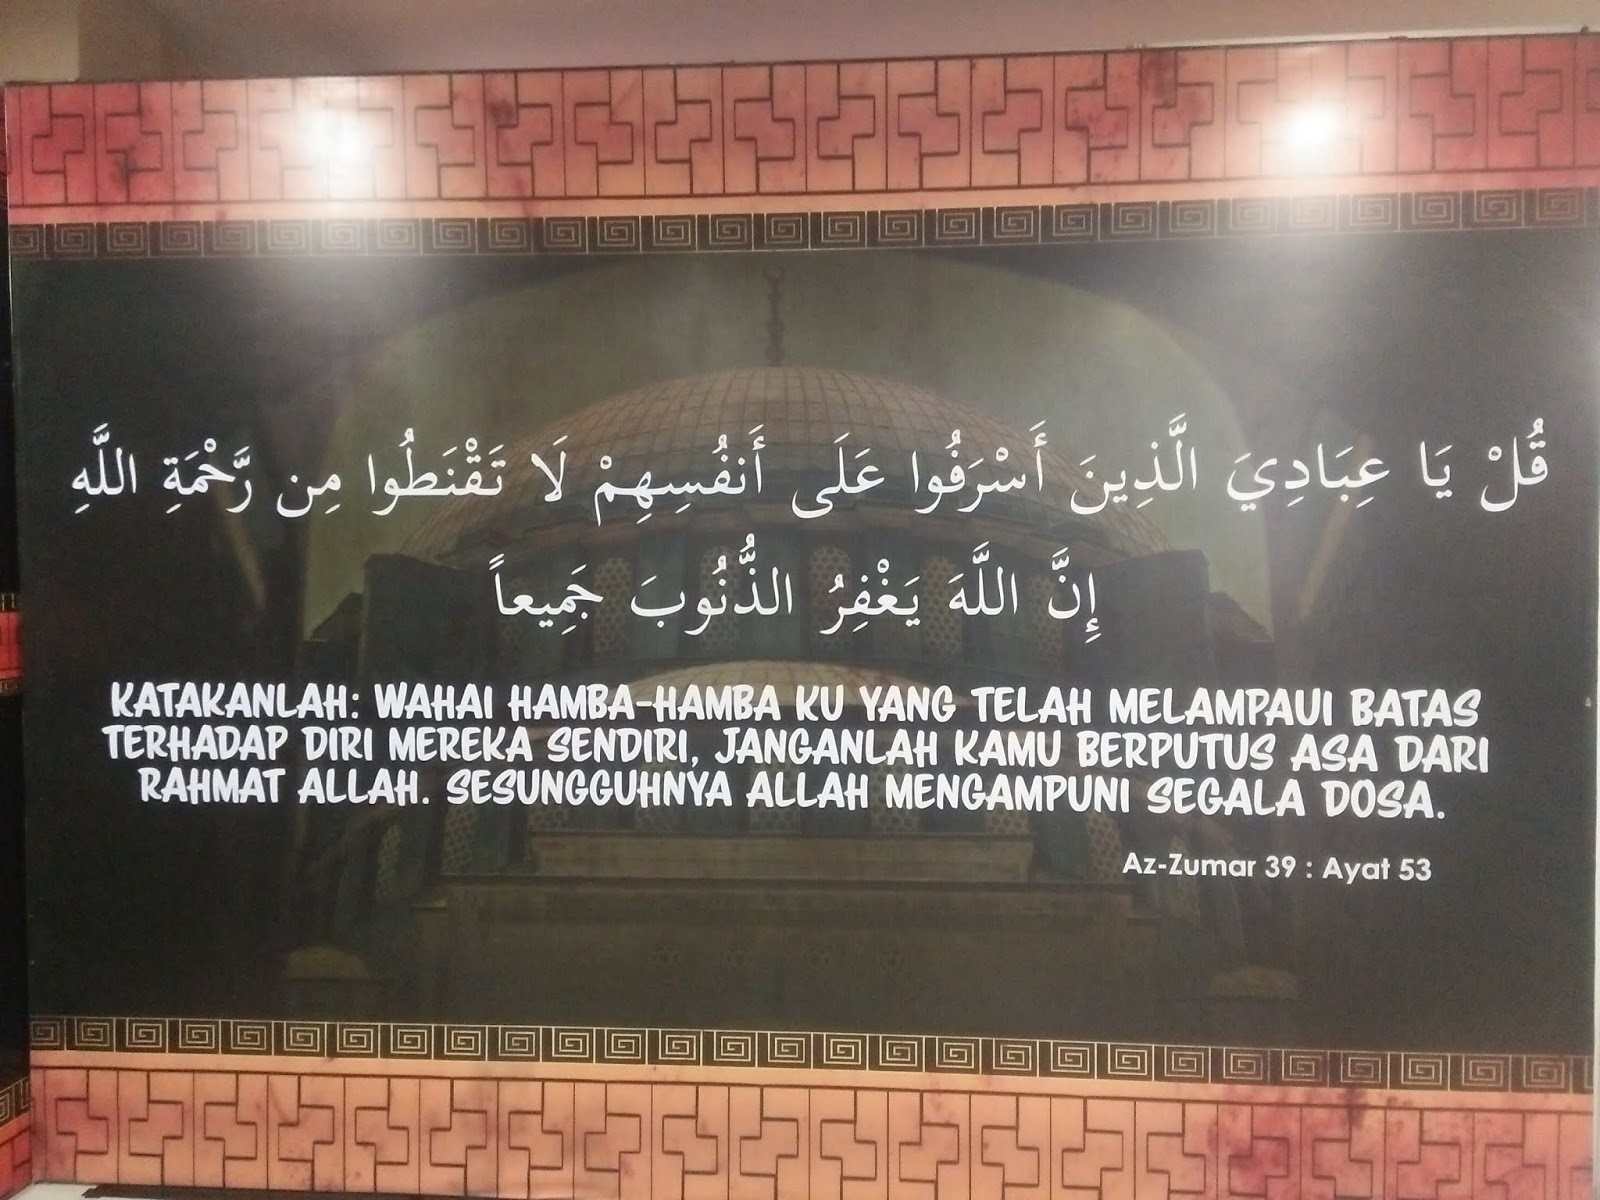 قُلْ يَا عِبَادِيَ الَّذِينَ أَسْرَفُوا عَلَى أَنفُسِهِمْ لَا تَقْنَطُوا مِن رَّحْمَةِ اللَّهِ
إِنَّ اللَّهَ يَغْفِرُ الذُّنُوبَ جَمِيعاً
KATAKANLAH: WAHAI HAMBA-HAMBA KU YANG TELAH MELAMPAUI BATAS
TERHADAP DIRI MEREKA SENDIRI, JANGANLAH KAMU BERPUTUS ASA DARI
RAHMAT ALLAH. SESUNGGUHNYA ALLAH MENGAMPUNI SEGALA DOSA.
Az-Zumar 39 : Ayat 53